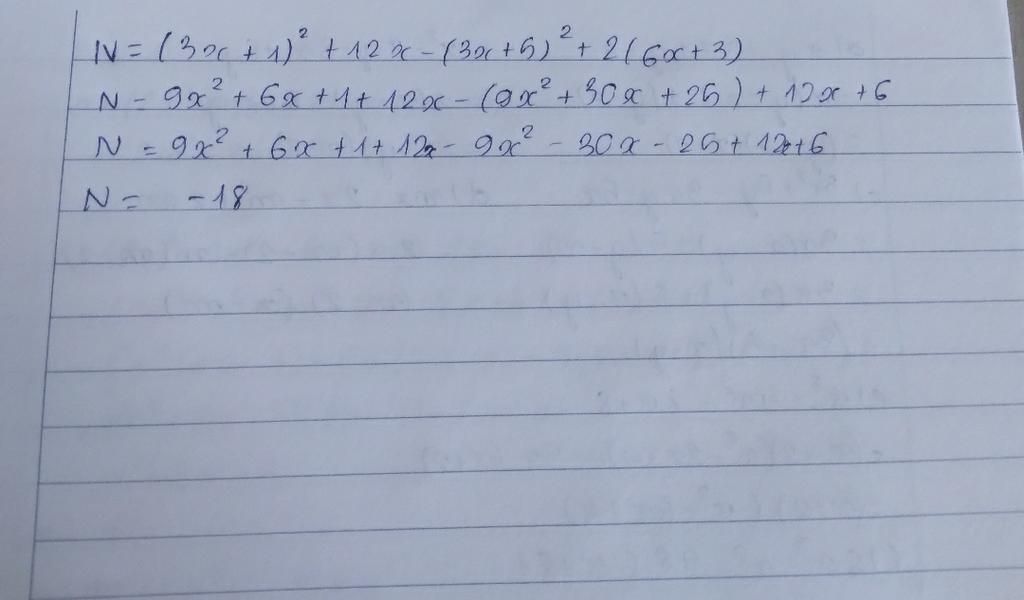 N = (3x + 1)² + 12x - (3x + 5)² + 2(6x + 3)
N = 9x² + 6x + 1 + 12x - (9x² + 30x + 25) + 12x + 6
N = 9x² + 6x + 1 + 12x - 9x² - 30x - 25 + 12x + 6
N = -18